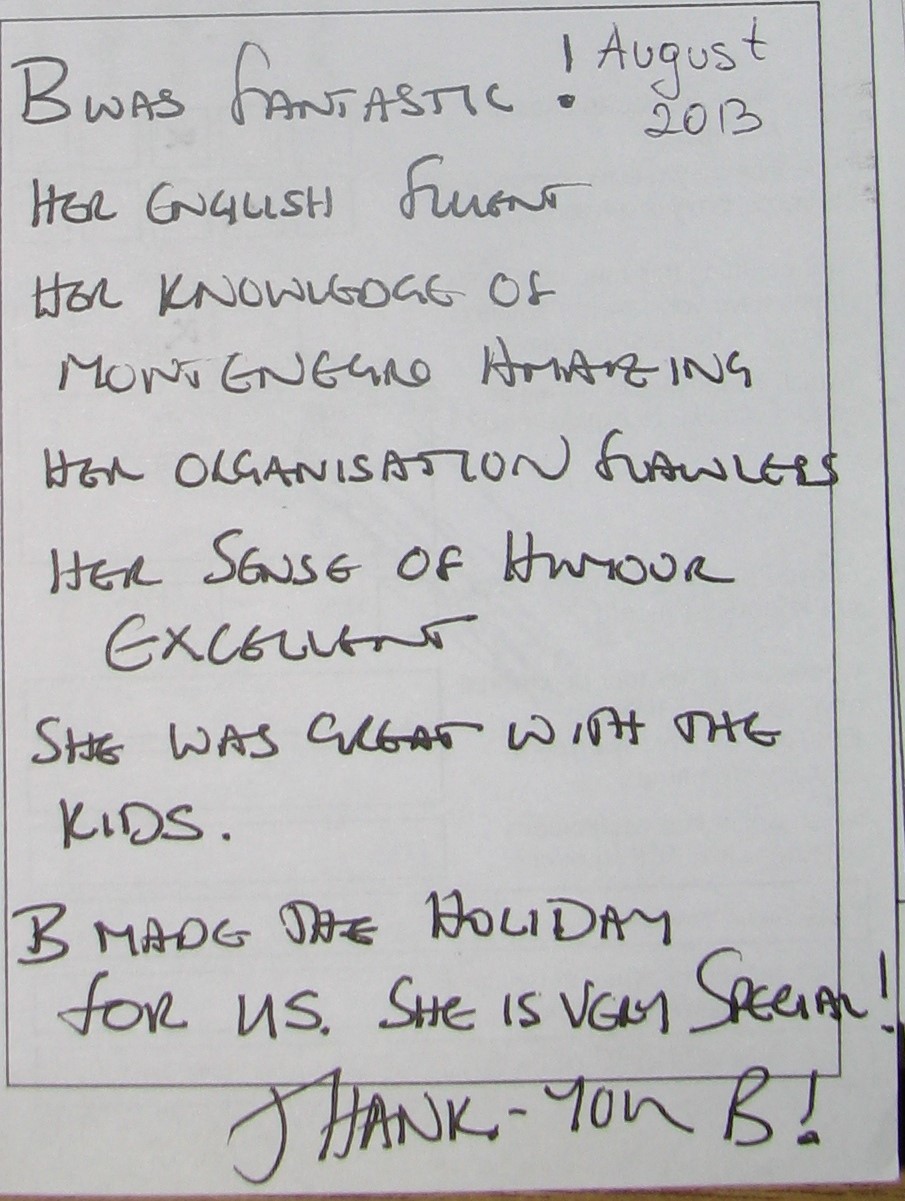 B WAS FANTASTIC ! August
2013
HER ENGLISH FLUENT
HER KNOWLEDGE OF
MONTENEGRO AMAZING
HER ORGANISATION FLAWLESS
HER SENSE OF HUMOUR
EXCELLENT
SHE WAS GREAT WITH THE
KIDS.
B MADE THE HOLIDAY
FOR US. SHE IS VERY SPECIAL!
THANK-YOU B!